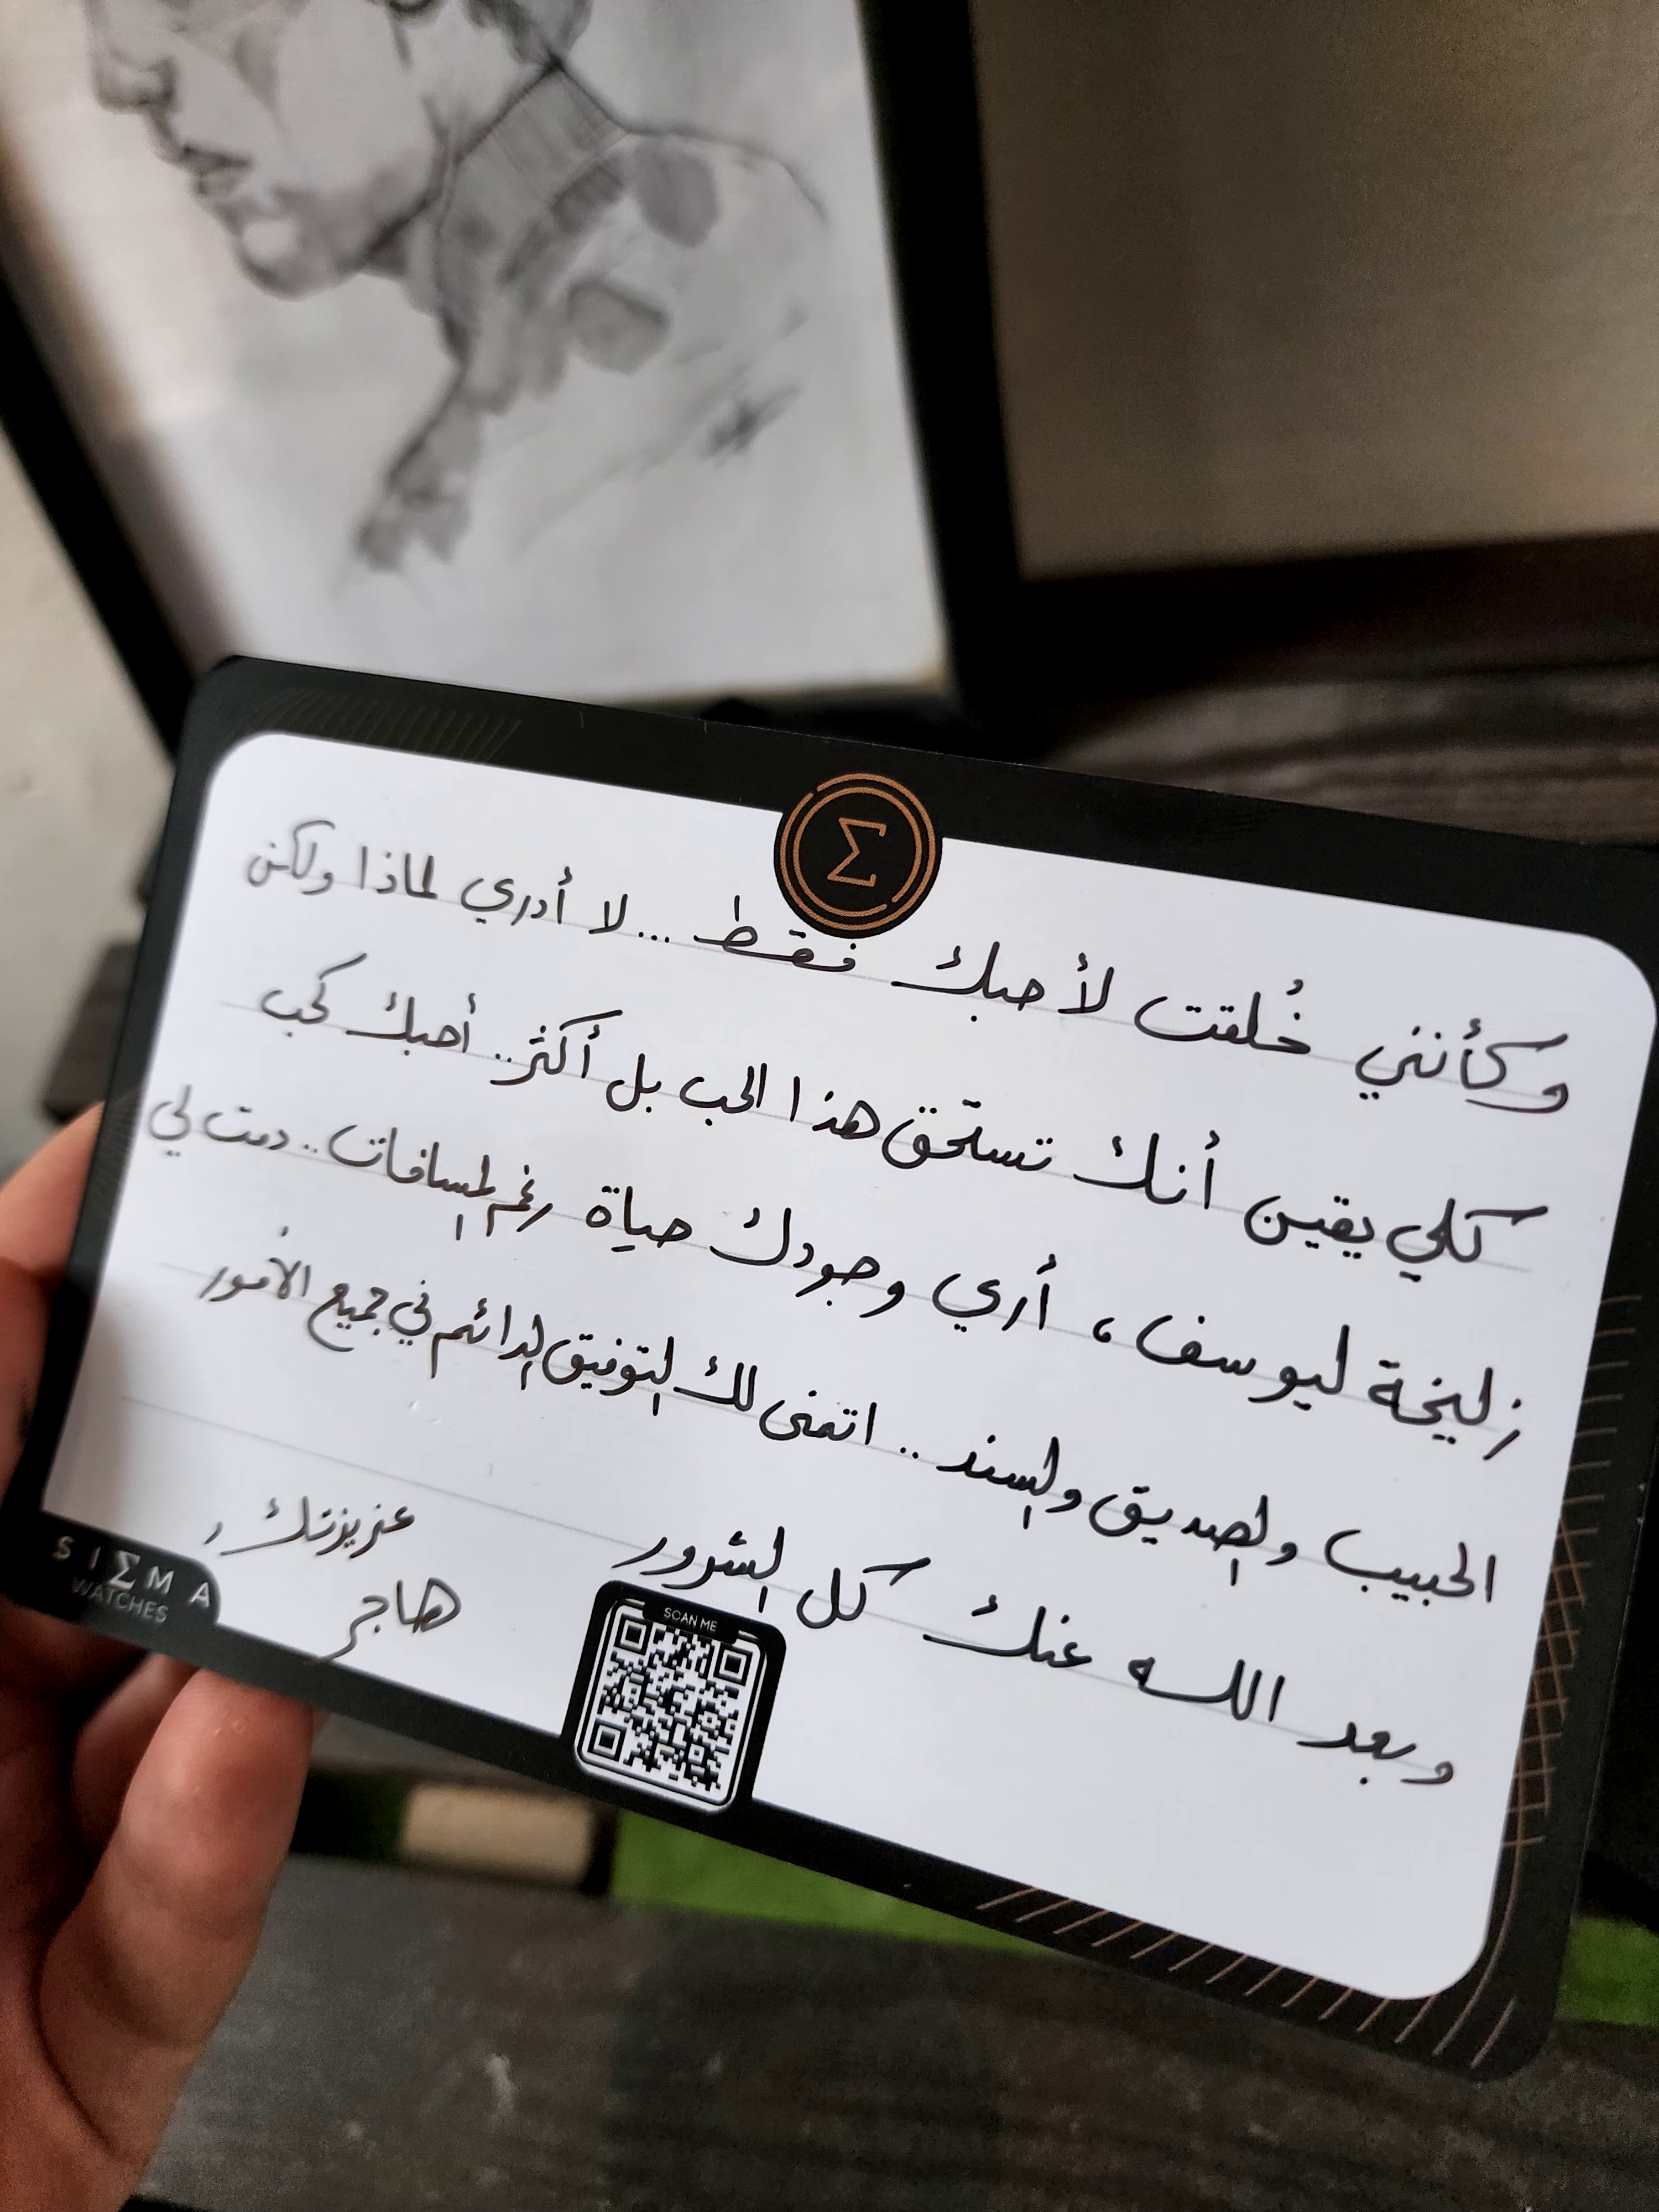 وكأنني خُلقت لأحبك فقط ... لا أدري لماذا ولكن
كلي يقين أنك تستحق هذا الحب بل أكثر .. أحبك كحب
زليخة ليوسف ، أري وجودك حياة رغم المسافات .. دمت لي
الحبيب والصديق والسند .. اتمنى لك التوفيق الدائم في جميع الأمور
وبعد الله عنك كل الشرور
عزيزتك ,
هاجر
Σ
SCAN ME
SIΣMA
WATCHES